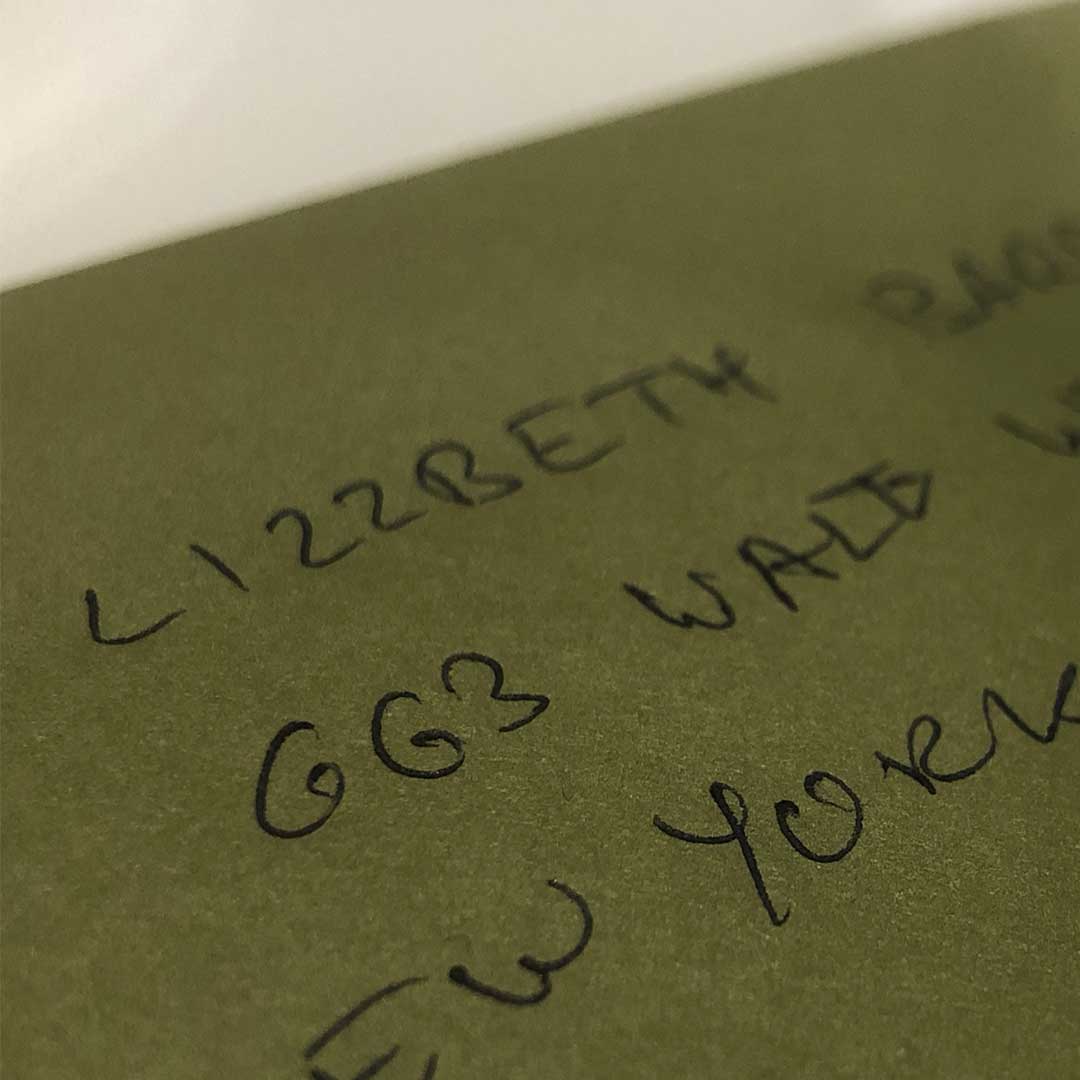 LIZZBETH
663 WALTO
EW YORK